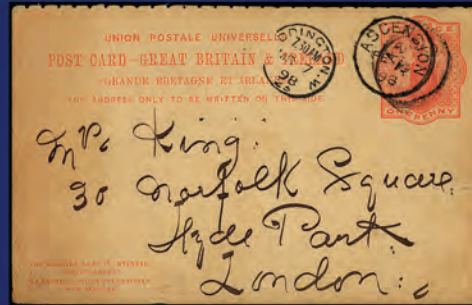 UNION POSTALE UNIVERSELLE
POST CARD-GREAT BRITAIN &
GRANDE BRETAGNE ET
THE ADDRESS ONLY TO BE WRITTEN ON THIS SIDE.
INGTON.W
7
98
ASCENSION
98
ONE PENNY
Mrs King.
30 Norfolk Square
Hyde Park.
London.